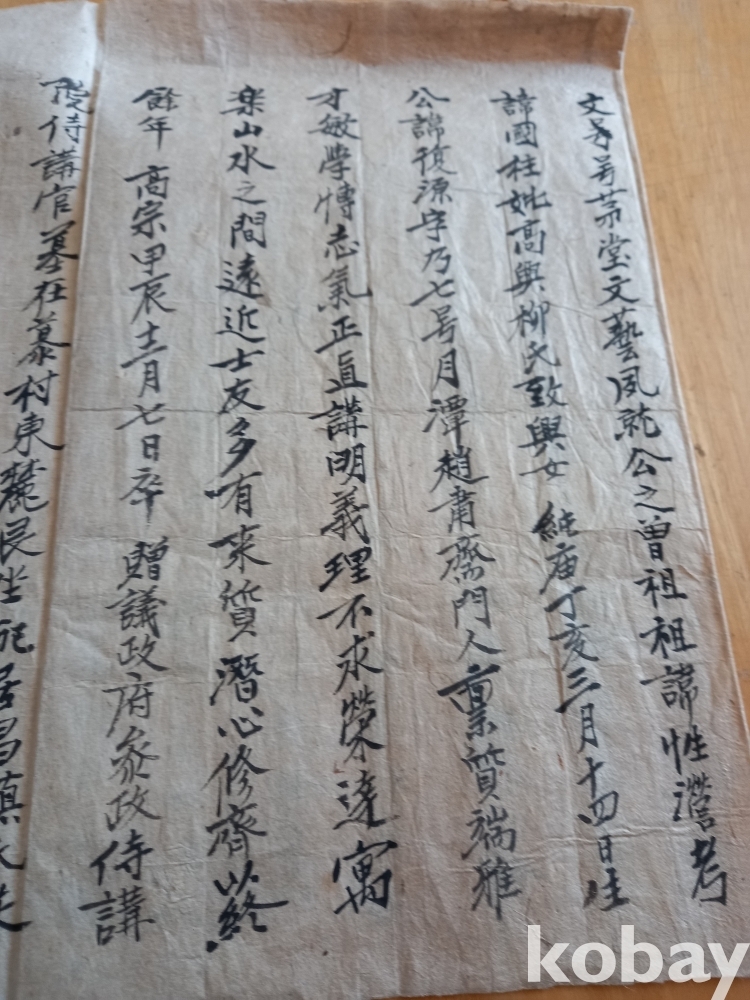 文万号茅堂文藝夙就公之曾祖祖諱性澹考
諱國柱妣高興柳氏致興女 純庙丁亥三月十四日生
公諱復源字乃七号月潭趙肅齋門人禀質端雅
才敏學博志氣正直講明義理不求榮達寓
楽山水之間遠近士友多有来質潛心修齊以終
餘年 高宗甲辰十二月七日卒 贈議政府参政侍講
院侍講官墓在慕村東麓艮坐
kobay